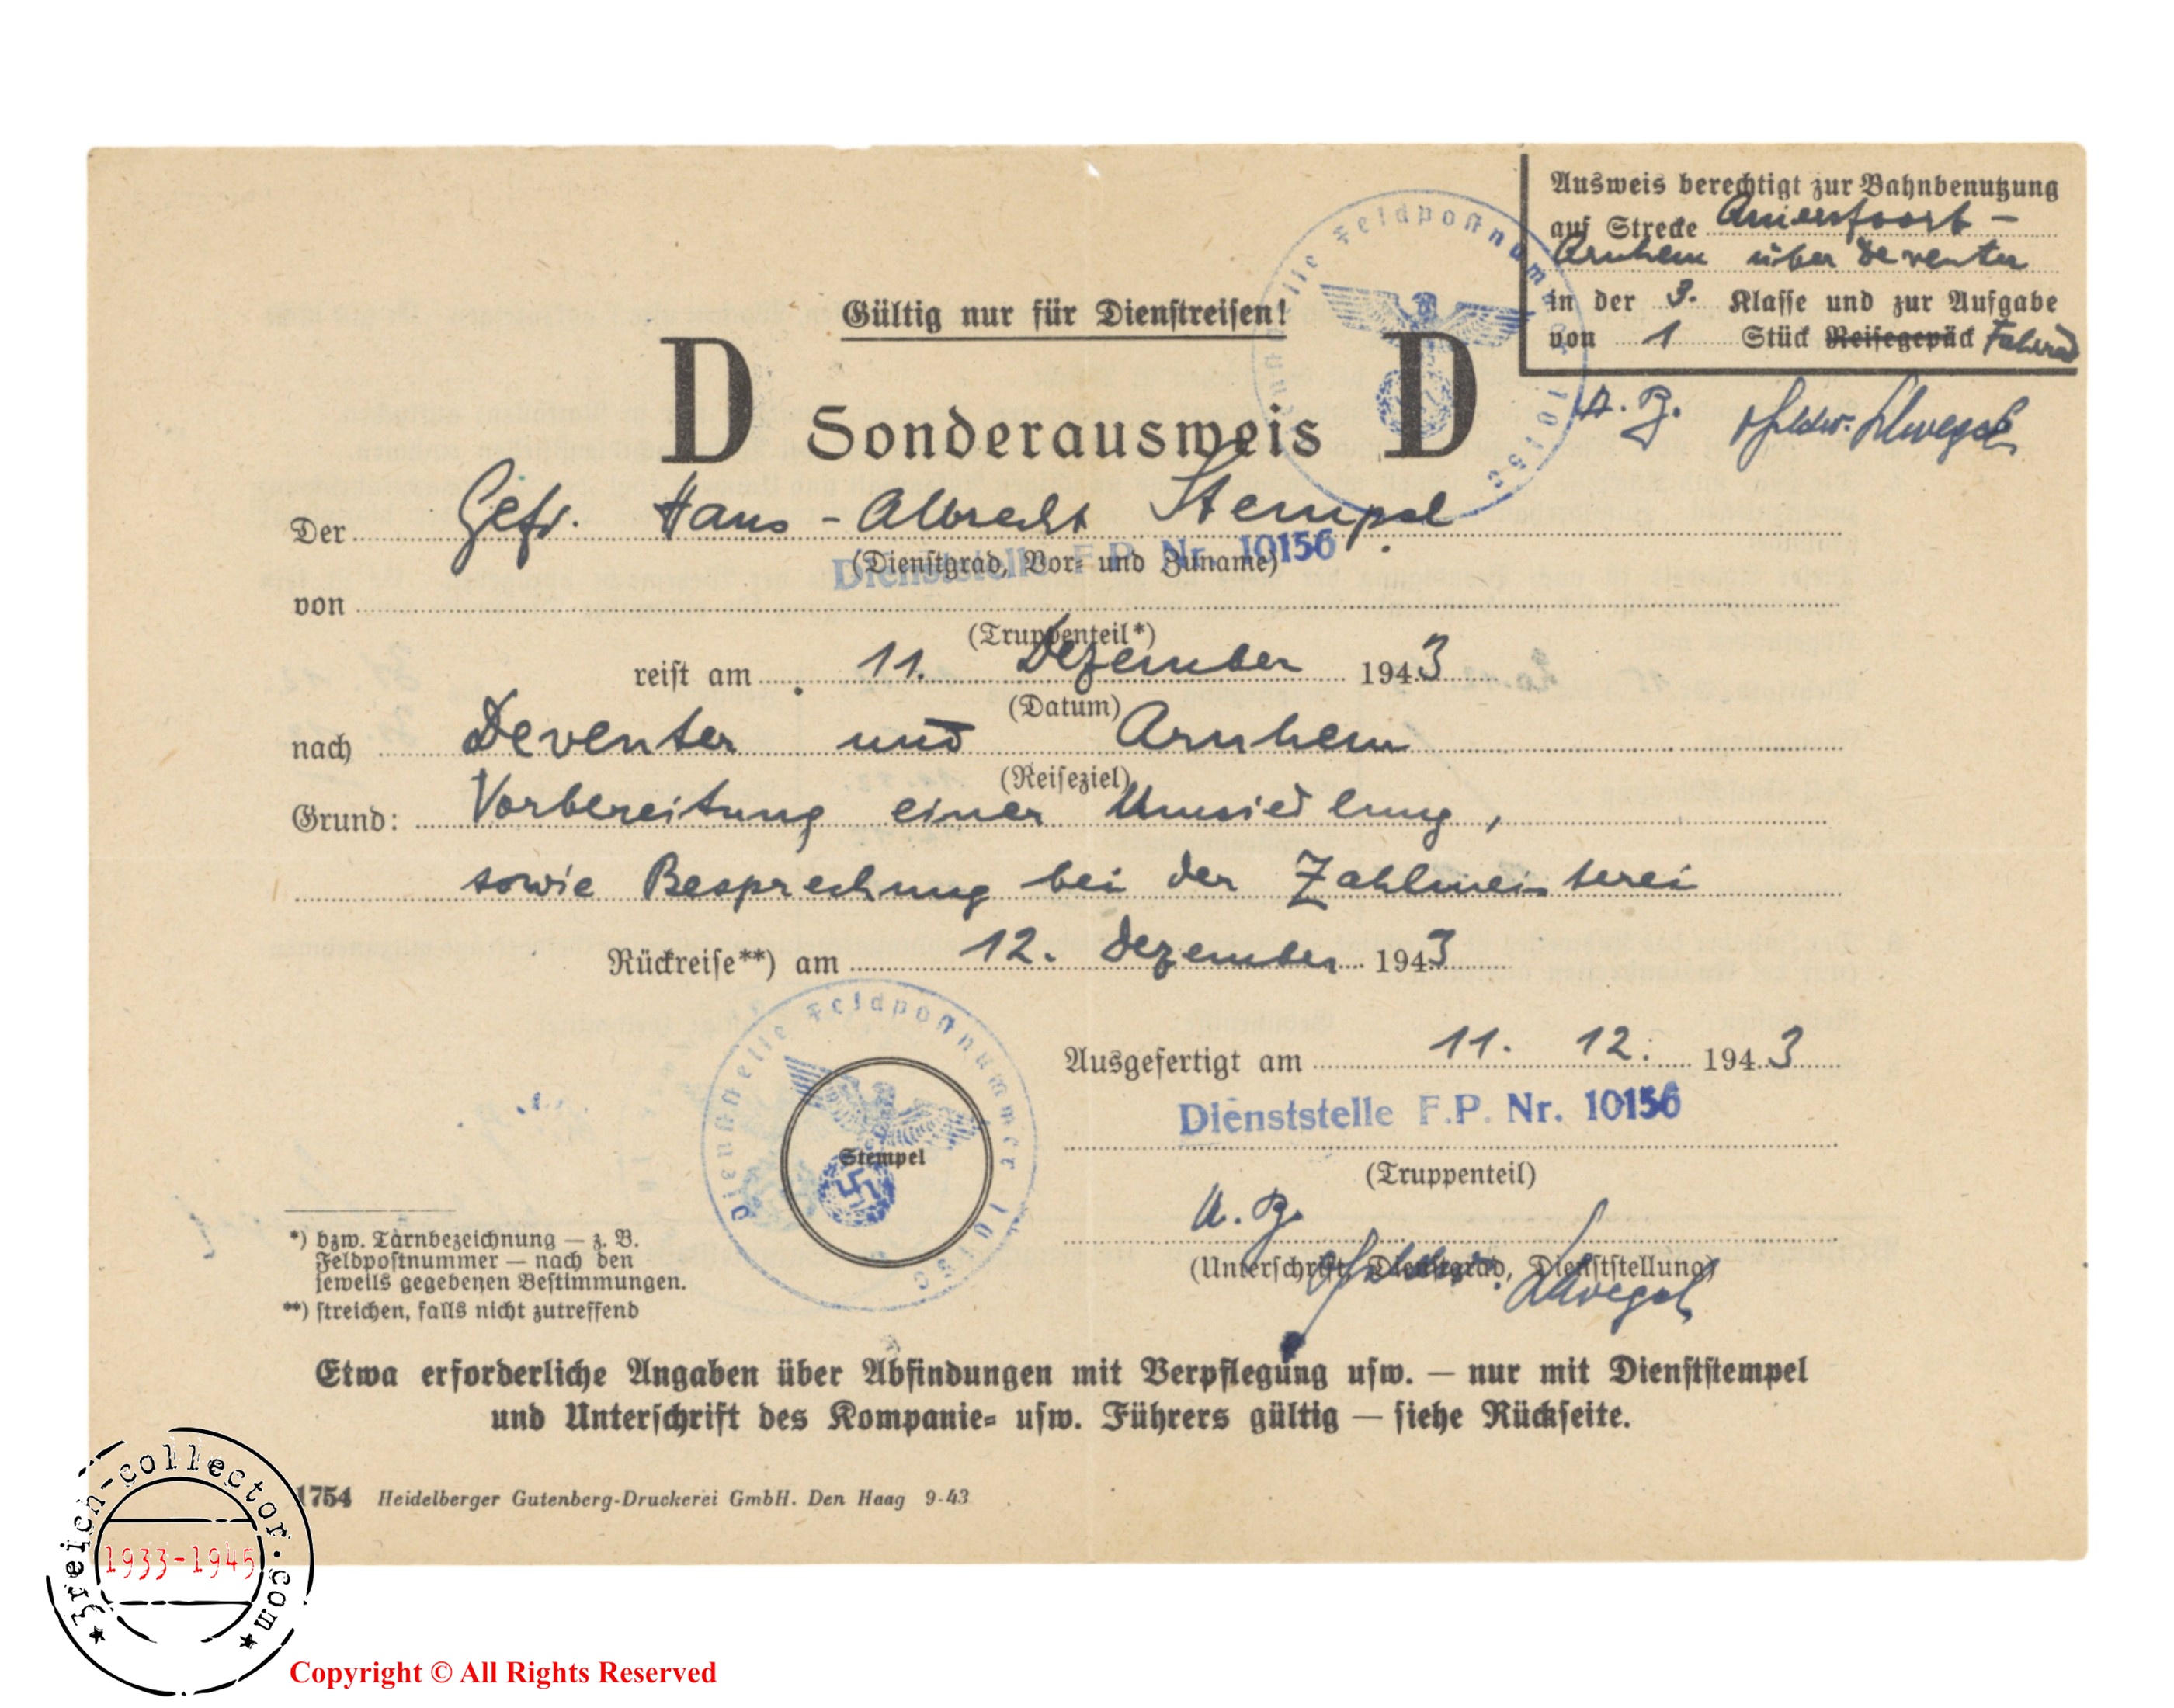 Ausweis berechtigt zur Bahnbenutzung
auf Strecke Amersfoort -
Arnhem über Deventer
in der 3. Klasse und zur Aufgabe
von 1 Stück Reisegepäck Fahrrad
A. B.
Gültig nur für Dienstreisen!
D Sonderausweis D
Dienststelle Feldpostnummer 10156
Der Gefr. Hans - Albrecht Stempel
(Dienstgrad, Vor- und Zuname)
Dienststelle F.P. Nr. 10156
von
(Truppenteil*)
reist am 11. Dezember 1943
(Datum)
nach Deventer und Arnhem
(Reiseziel)
Grund: Vorbereitung einer Umsiedlung,
sowie Besprechung bei der Zahlmeisterei
Rückreise**) am 12. Dezember 1943
Dienststelle Feldpostnummer 10156
Stempel
Ausgefertigt am 11. 12. 1943
Dienststelle F.P. Nr. 10156
(Truppenteil)
A. B.
(Unterschrift, Dienstgrad, Dienststellung)
*) bzw. Tarnbezeichnung — z. B.
Feldpostnummer — nach den
jeweils gegebenen Bestimmungen.
**) streichen, falls nicht zutreffend
Etwa erforderliche Angaben über Abfindungen mit Verpflegung usw. — nur mit Dienststempel
und Unterschrift des Kompanie- usw. Führers gültig — siehe Rückseite.
1754 Heidelberger Gutenberg-Druckerei GmbH. Den Haag 9-43
3reich-collector.com
1933-1945
Copyright © All Rights Reserved